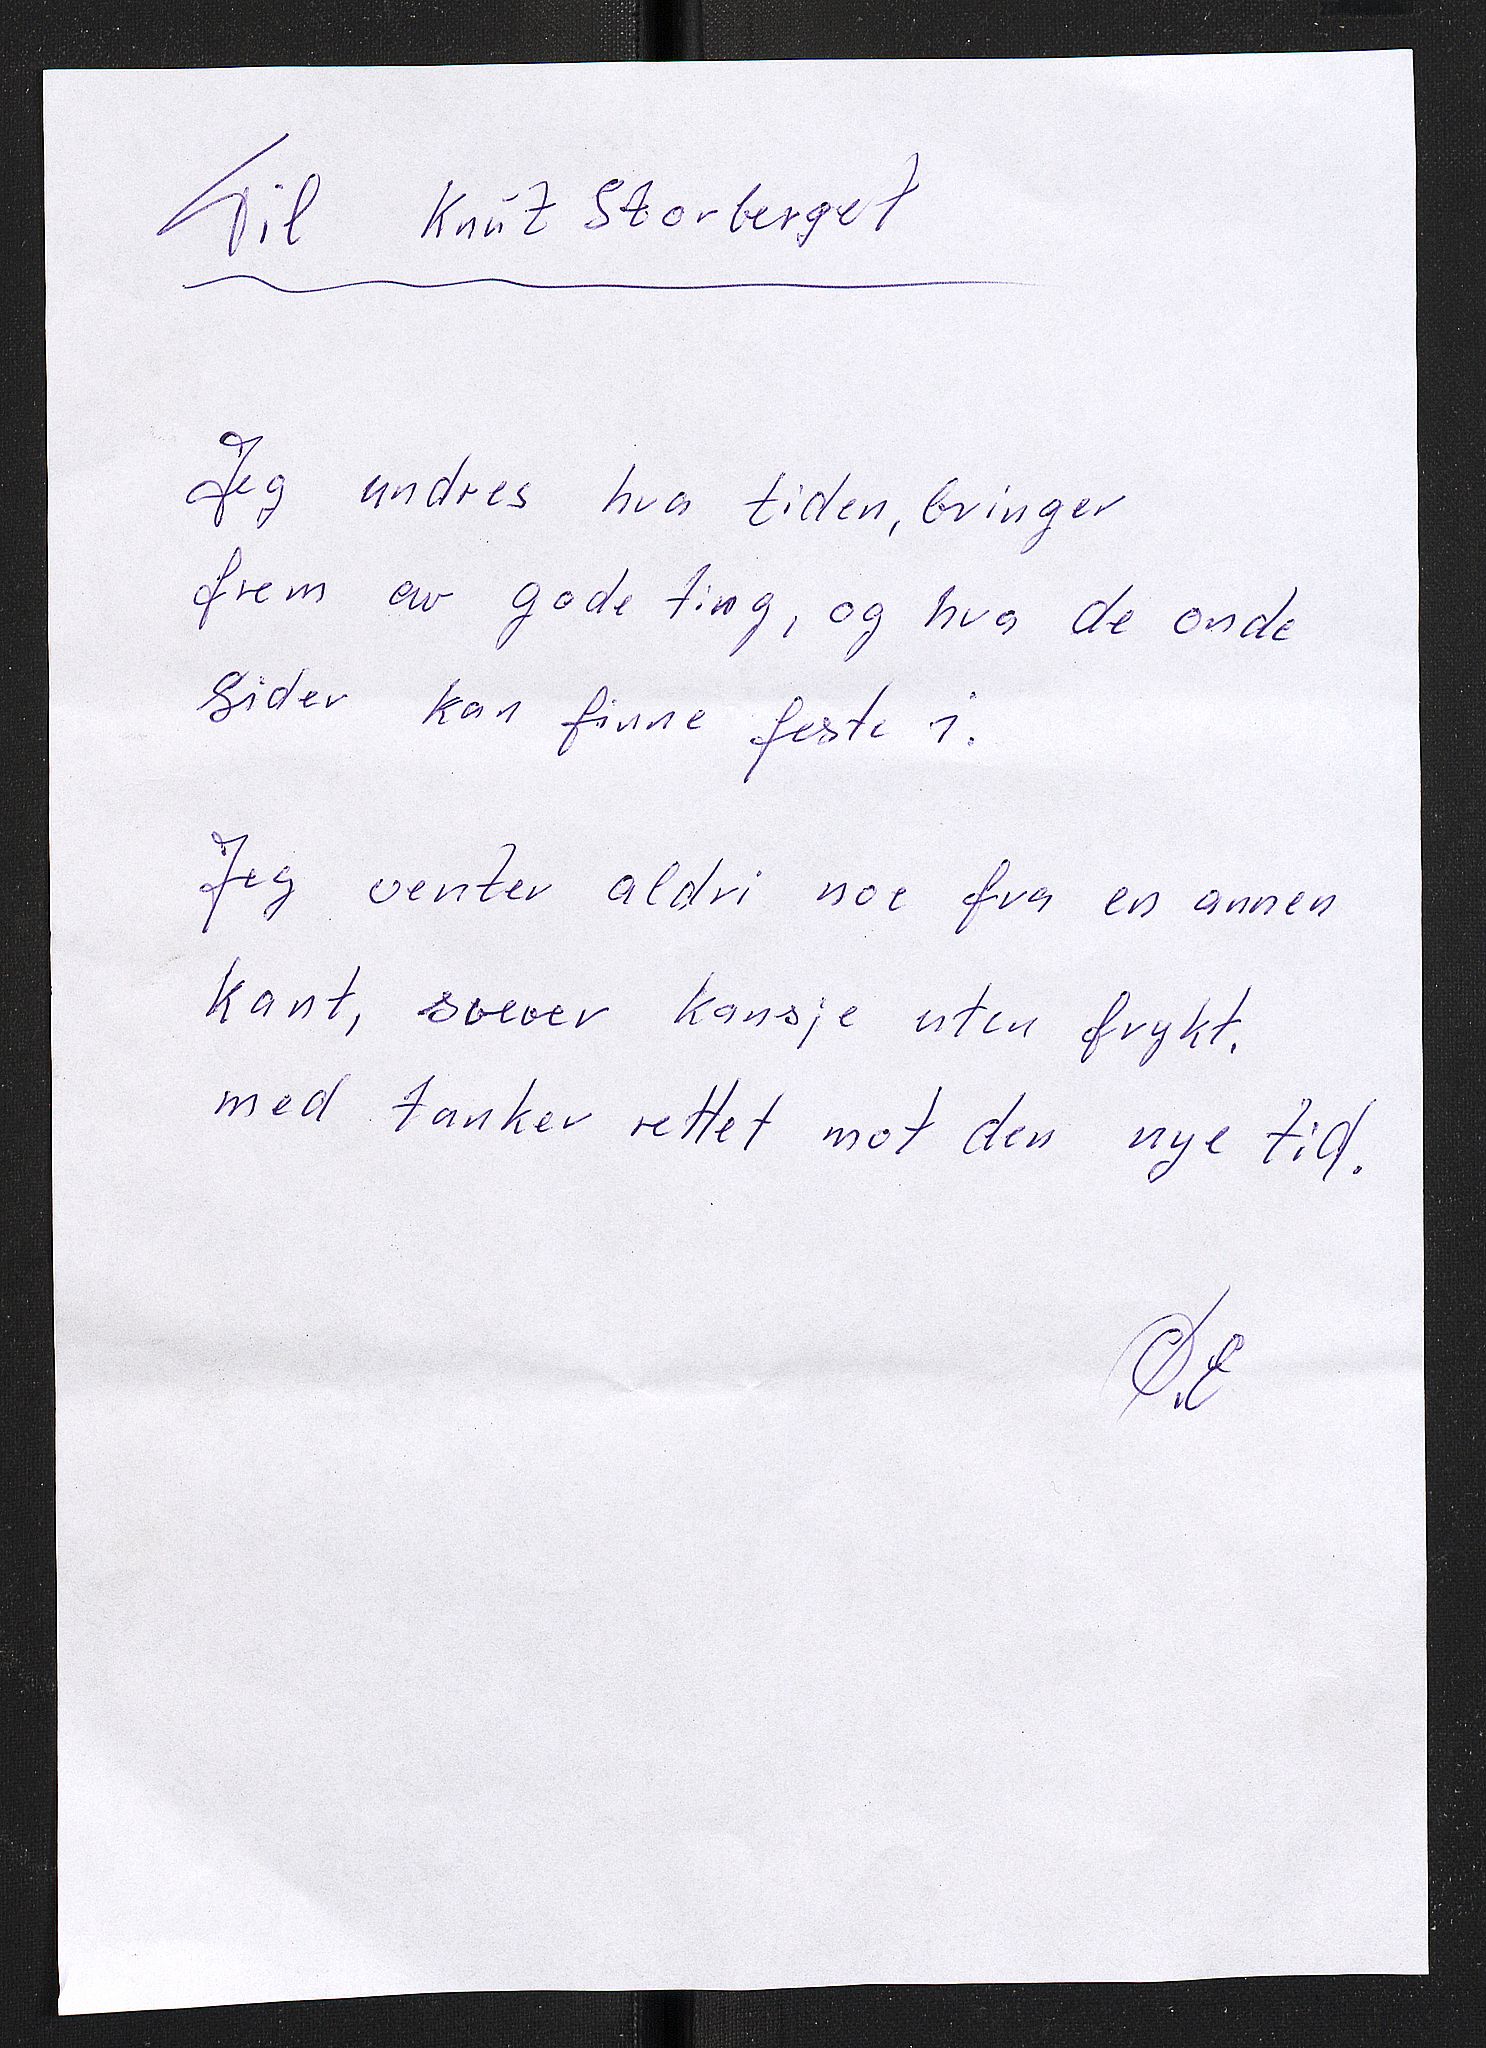 Til Knut Storberget
Jeg undres hva tiden, bringer
frem av gode ting, og hva de onde
sider kan finne feste i.
Jeg venter aldri noe fra en annen
kant, svever kansje uten frykt.
med tanker rettet mot den nye tid.
Ø.E